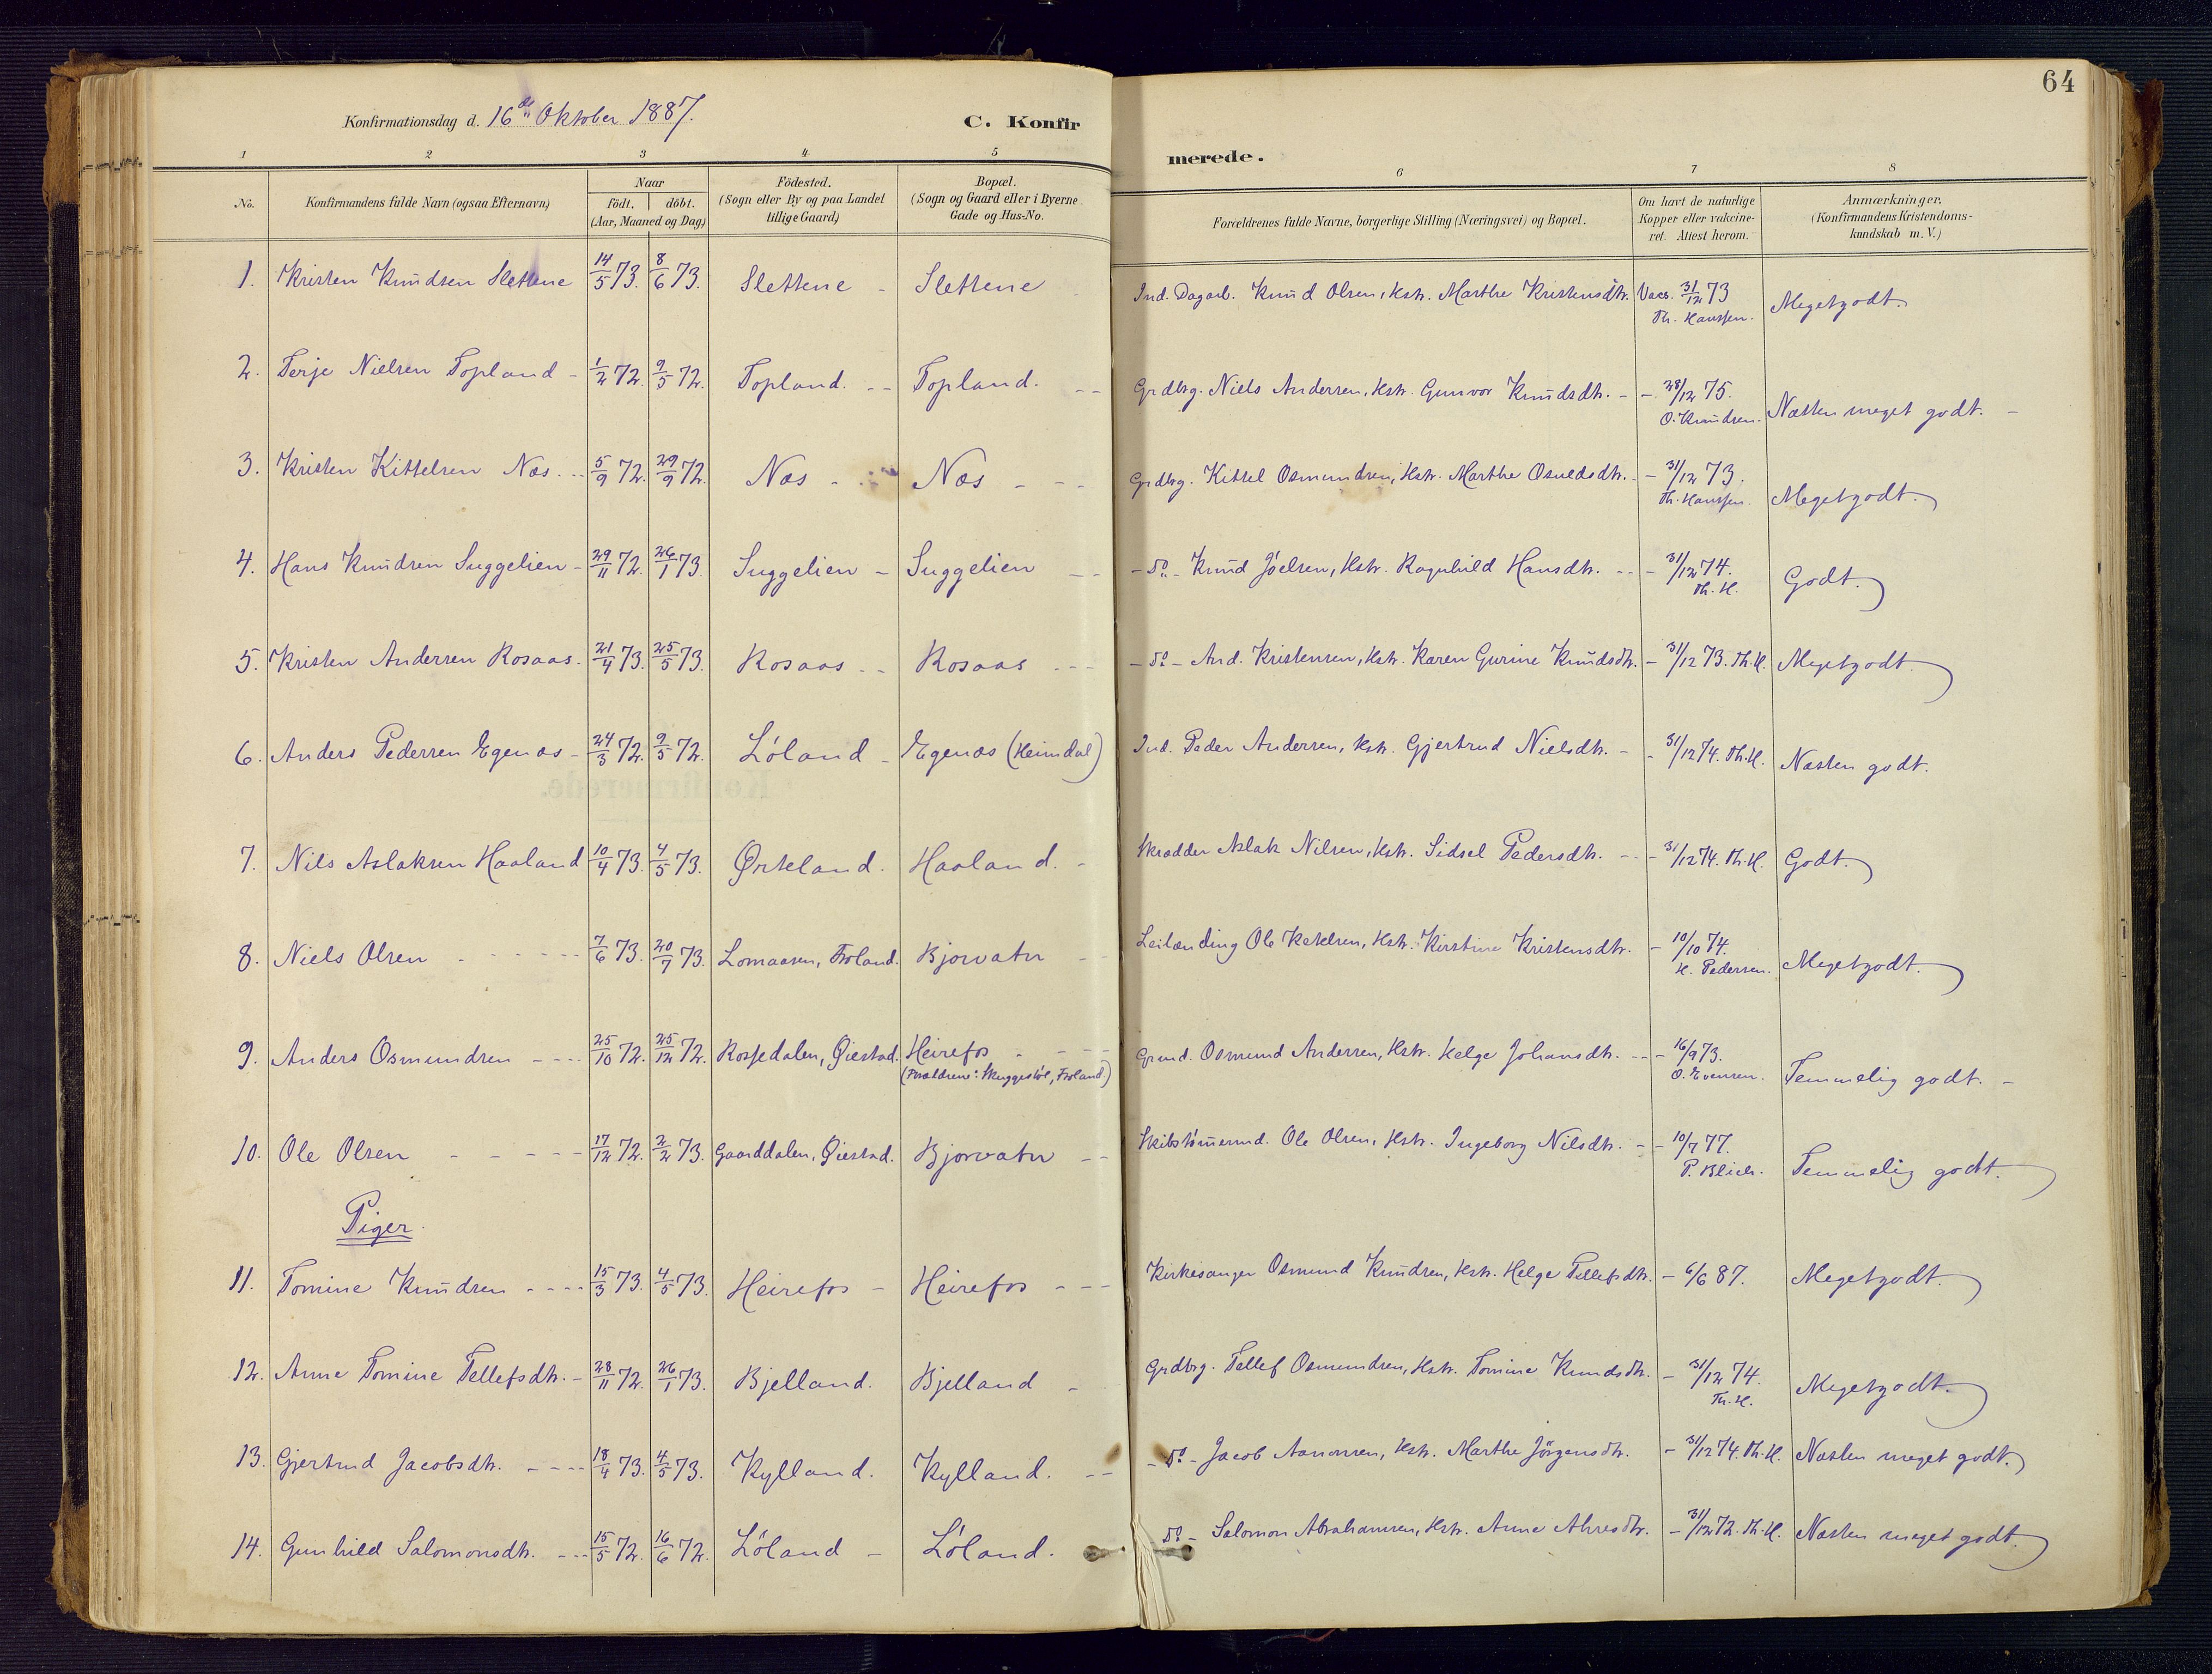 64
Konfirmationsdag d. 16de Oktober 1887.
C. Konfirmerede.
1 2 3 4 5 6 7 8
No. | Konfirmandens fulde Navn (ogsaa Efternavn) | Naar födt. döbt. (Aar, Maaned og Dag) | Födested. (Sogn eller By og paa Landet tillige Gaard) | Bopæl. (Sogn og Gaard eller i Byerne Gade og Hus-No. | Forældrenes fulde Navne, borgerlige Stilling (Næringsvei) og Bopæl. | Om havt de naturlige Kopper eller vakcineret. Attest herom. | Anmærkninger. (Konfirmandens Kristendomskundskab m. V.)
1. Kristen Knudsen Slettene 14/5 73. 8/6 73. Slettene - Slettene Ind. Dagarb. Knud Olsen, Kstr. Marthe Kristensdtr. Vacc. 31/12 73 Th. Hanssen. Megetgodt.
2. Terje Nielsen Topland - 1/2 72. 9/5 72. Topland. -- Topland. -- Grdbrg. Niels Andersen, Kstr. Gunvor Knudsdtr. - - 28/12 75. O. Knudsen. Næsten meget godt. -
3. Kristen Kittelsen Næs. -- 5/9 72. 29/9 72. Næs - Næs - -- Grdbrg. Kittel Osmundsen, Kstr. Marthe Osuldsdtr. - - 31/12 73. Th. Hanssen. Megetgodt.
4. Hans Knudsen Suggelien - 29/11 72. 26/1 73. Suggelien - Suggelien -- - Do - Knud Jöelsen, Kstr. Ragnhild Hansdtr. -- - 31/12 74. Th. H. Godt.
5. Kristen Andersen Rosaas. 21/4 73. 25/5 73. Rosaas -- Rosaas --- - Do - And. Kristensen, Kstr. Karen Gurine Knudsdtr. - 31/12 73. Th. H. Megetgodt.
6. Anders Pedersen Egenæs - 24/3 72. 9/5 72. Löland - Egenæs (Heimdal) Ind. Peder Andersen, Kstr. Gjertrud Nielsdtr. - - 31/12 74. Th. H. Næsten godt.
7. Nils Aslaksen Haaland 10/4 73. 4/5 73. Ørteland. Haaland. - Skrædder Aslak Nilsen, Kstr. Sidsel Pedersdtr. -- - 31/12 74. Th. H. Godt.
8. Niels Olsen - - - - - - 7/6 73. 20/7 73. Lomaasen, Froland. Bjorvatn -- Leilænding Ole Ketelsen, Kstr. Kirstine Kristensdtr. - 10/10 74. H. Pedersen. Megetgodt.
9. Anders Osmundsen - - - - 25/10 72. 25/12 72. Rossedalen, Øiestad. Heirefos - - - Grmd. Osmund Andersen, Kstr. Helge Johansdtr. -- - 16/9 73. O. Evensen. Temmelig godt. -
(Forældrene: Skuggestöl, Froland)
10. Ole Olsen - - - - - 17/12 72. 2/2 73. Gaarddalen, Øiestad. Bjorvatn -- Skibstömmermd. Ole Olsen, Kstr. Ingeborg Nilsdtr. - - 10/7 77. P. Blich. Temmelig godt.
Piger.
11. Tomine Knudsen - - - - 15/3 73. 4/5 73. Heirefos - Heirefos - - - Kirkesanger Osmund Knudsen, Kstr. Helge Tellefsdtr. - 6/6 87. Megetgodt.
12. Anne Tomine Tellefsdtr. - 28/11 72. 26/1 73. Bjelland. Bjelland - Grdbrg. Tellef Osmundsen, Kstr. Tomine Knudsdtr. - 31/12 74. Th. H. Megetgodt.
13. Gjertrud Jacobsdtr. - - - - 18/4 73. 4/5 73. Kylland. Kylland. -- - Do - Jacob Aanonsen, Kstr. Marthe Jörgensdtr. - 31/12 74. Th. H. Næsten meget godt.
14. Gunhild Salomonsdtr. - - - 15/5 72. 16/6 72. Löland - Löland. Do - Salomon Abrahamsen, Kstr. Anne Ahresdtr. - 31/12 72. Th. H. Næsten meget godt.